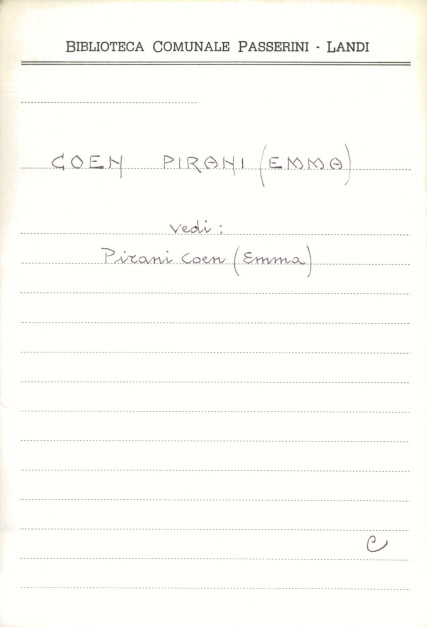 BIBLIOTECA COMUNALE PASSERINI - LANDI
COEN PIRANI (EMMA)
vedi:
Pirani Coen (Emma)
C